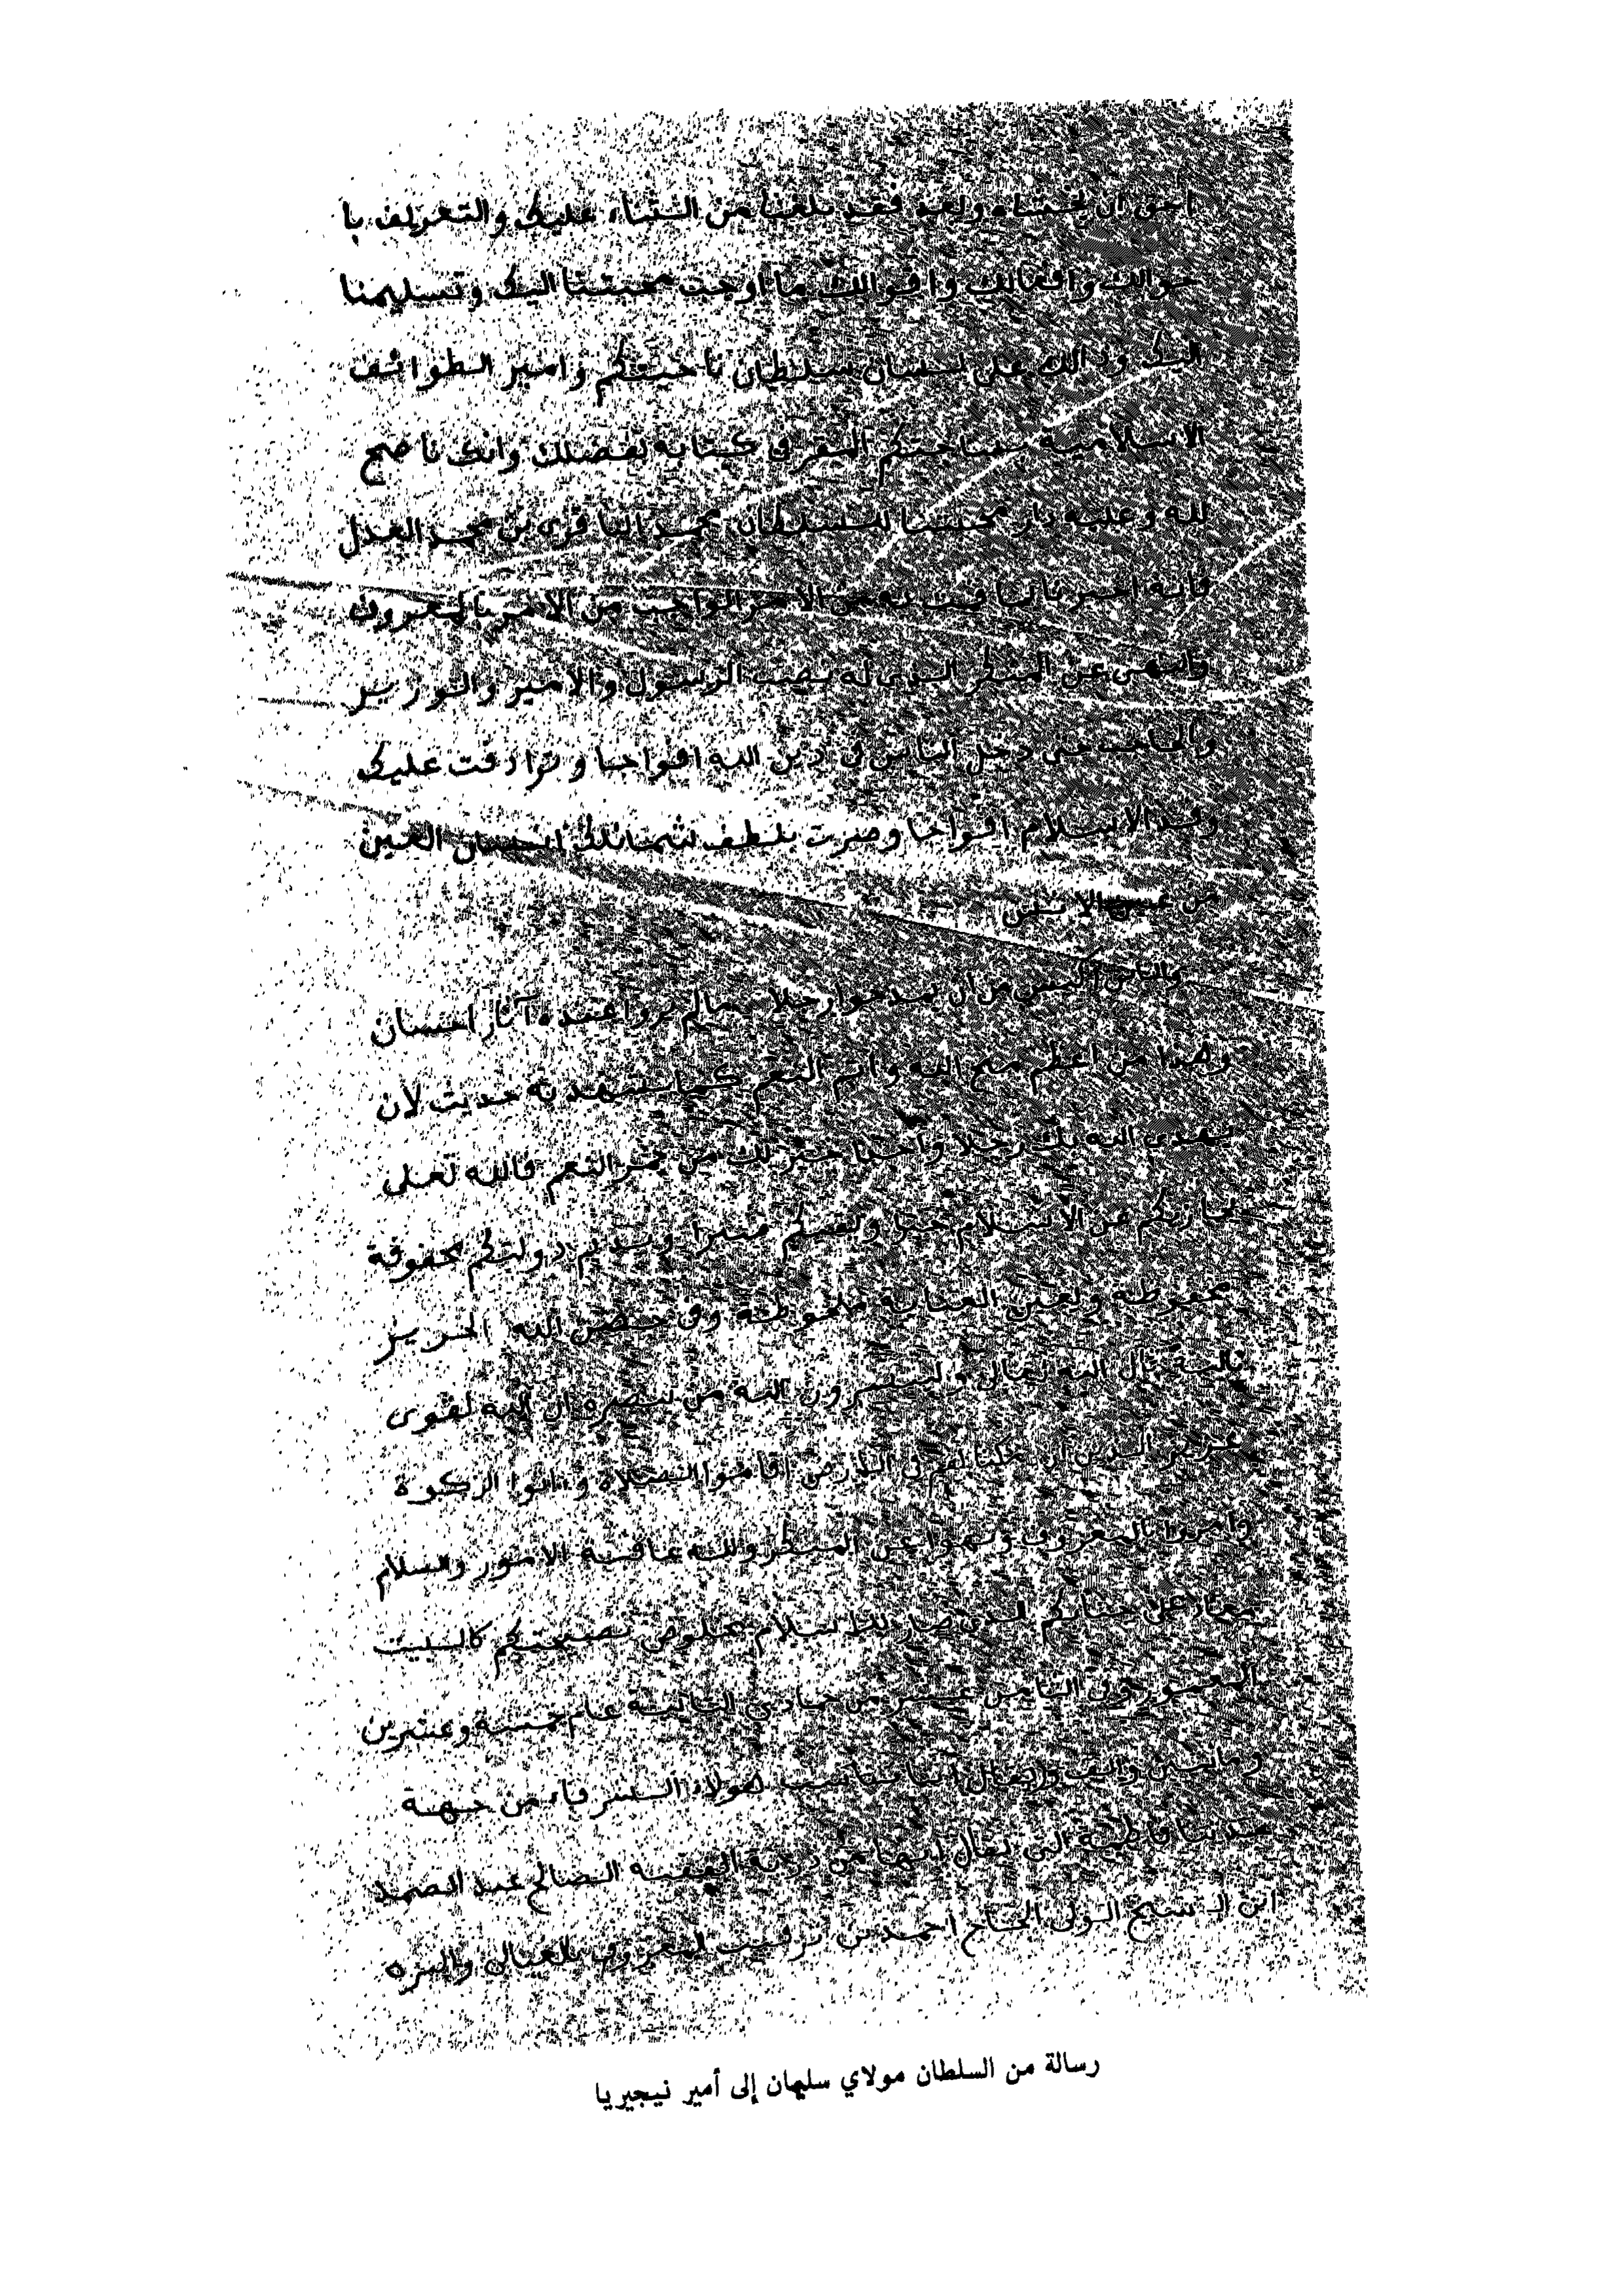 أحق ان تخشاه وبعد فقد بلغنا من الثناء عليك والتعريف با
حوالك وافعالك واقوالك ما اوجب محبتنا اليك وتسليمنا
اليك وذالك على لسان سلطان ناحيتكم وامير الطوائف
الاسلامية بساحتكم المقر في كتابه بفضلك وانك ناصح
لله وعليه دار محبنا السلطان محمد الباقرى بن محمد العدل
فانه اخبرنا بما قمت به من الامر الواجب من الامر بالمعروف
والنهى عن المنكر الذى له نصب الرسول والامير والوزير
والحاجب حتى دخل الناس في دين الله افواجا وترادفت عليك
وفد الاسلام افواجا وصرت بلطف شمائلك الحسان العين
من عين الانس
والناس أكيس من أن يمدحوا رجلا مالم يروا عنده آثار احسان
وهذا من اعظم منح الله وأتم النعم كما يشهد به حديث لأن
يهدى الله بك رجلا واحدا خير لك من حمر النعم فالله تعلى
يجازيكم عن الاسلام خيرا ويديم دولتكم محفوفة
محفوظة وبعين العناية ملحوظة وفي حصن الله الحريز
قال الله تعالى ولينصرون الله من ينصره ان الله لقوى
عزيز الذين ان مكناهم في الارض اقاموا الصلاة وءاتوا الزكوة
وامروا بالمعروف ونهوا عن المنكر ولله عاقبة الامور والسلام
معاد على جنابكم الذى صار للاسلام بخلوص نصيحتكم كالبيت
المعمور في الثامن عشر من جمادى الثانية عام خمسة وعشرين
ومائتين والف ويقال هولاء الشرفاء من جهة
جدتنا فاطمة التي يقال انها من ذرية الفقيه الصالح عبد الصمد
ابن الشيخ الولى الحاج احمد بن
رسالة من السلطان مولاي سليمان إلى أمير نيجيريا